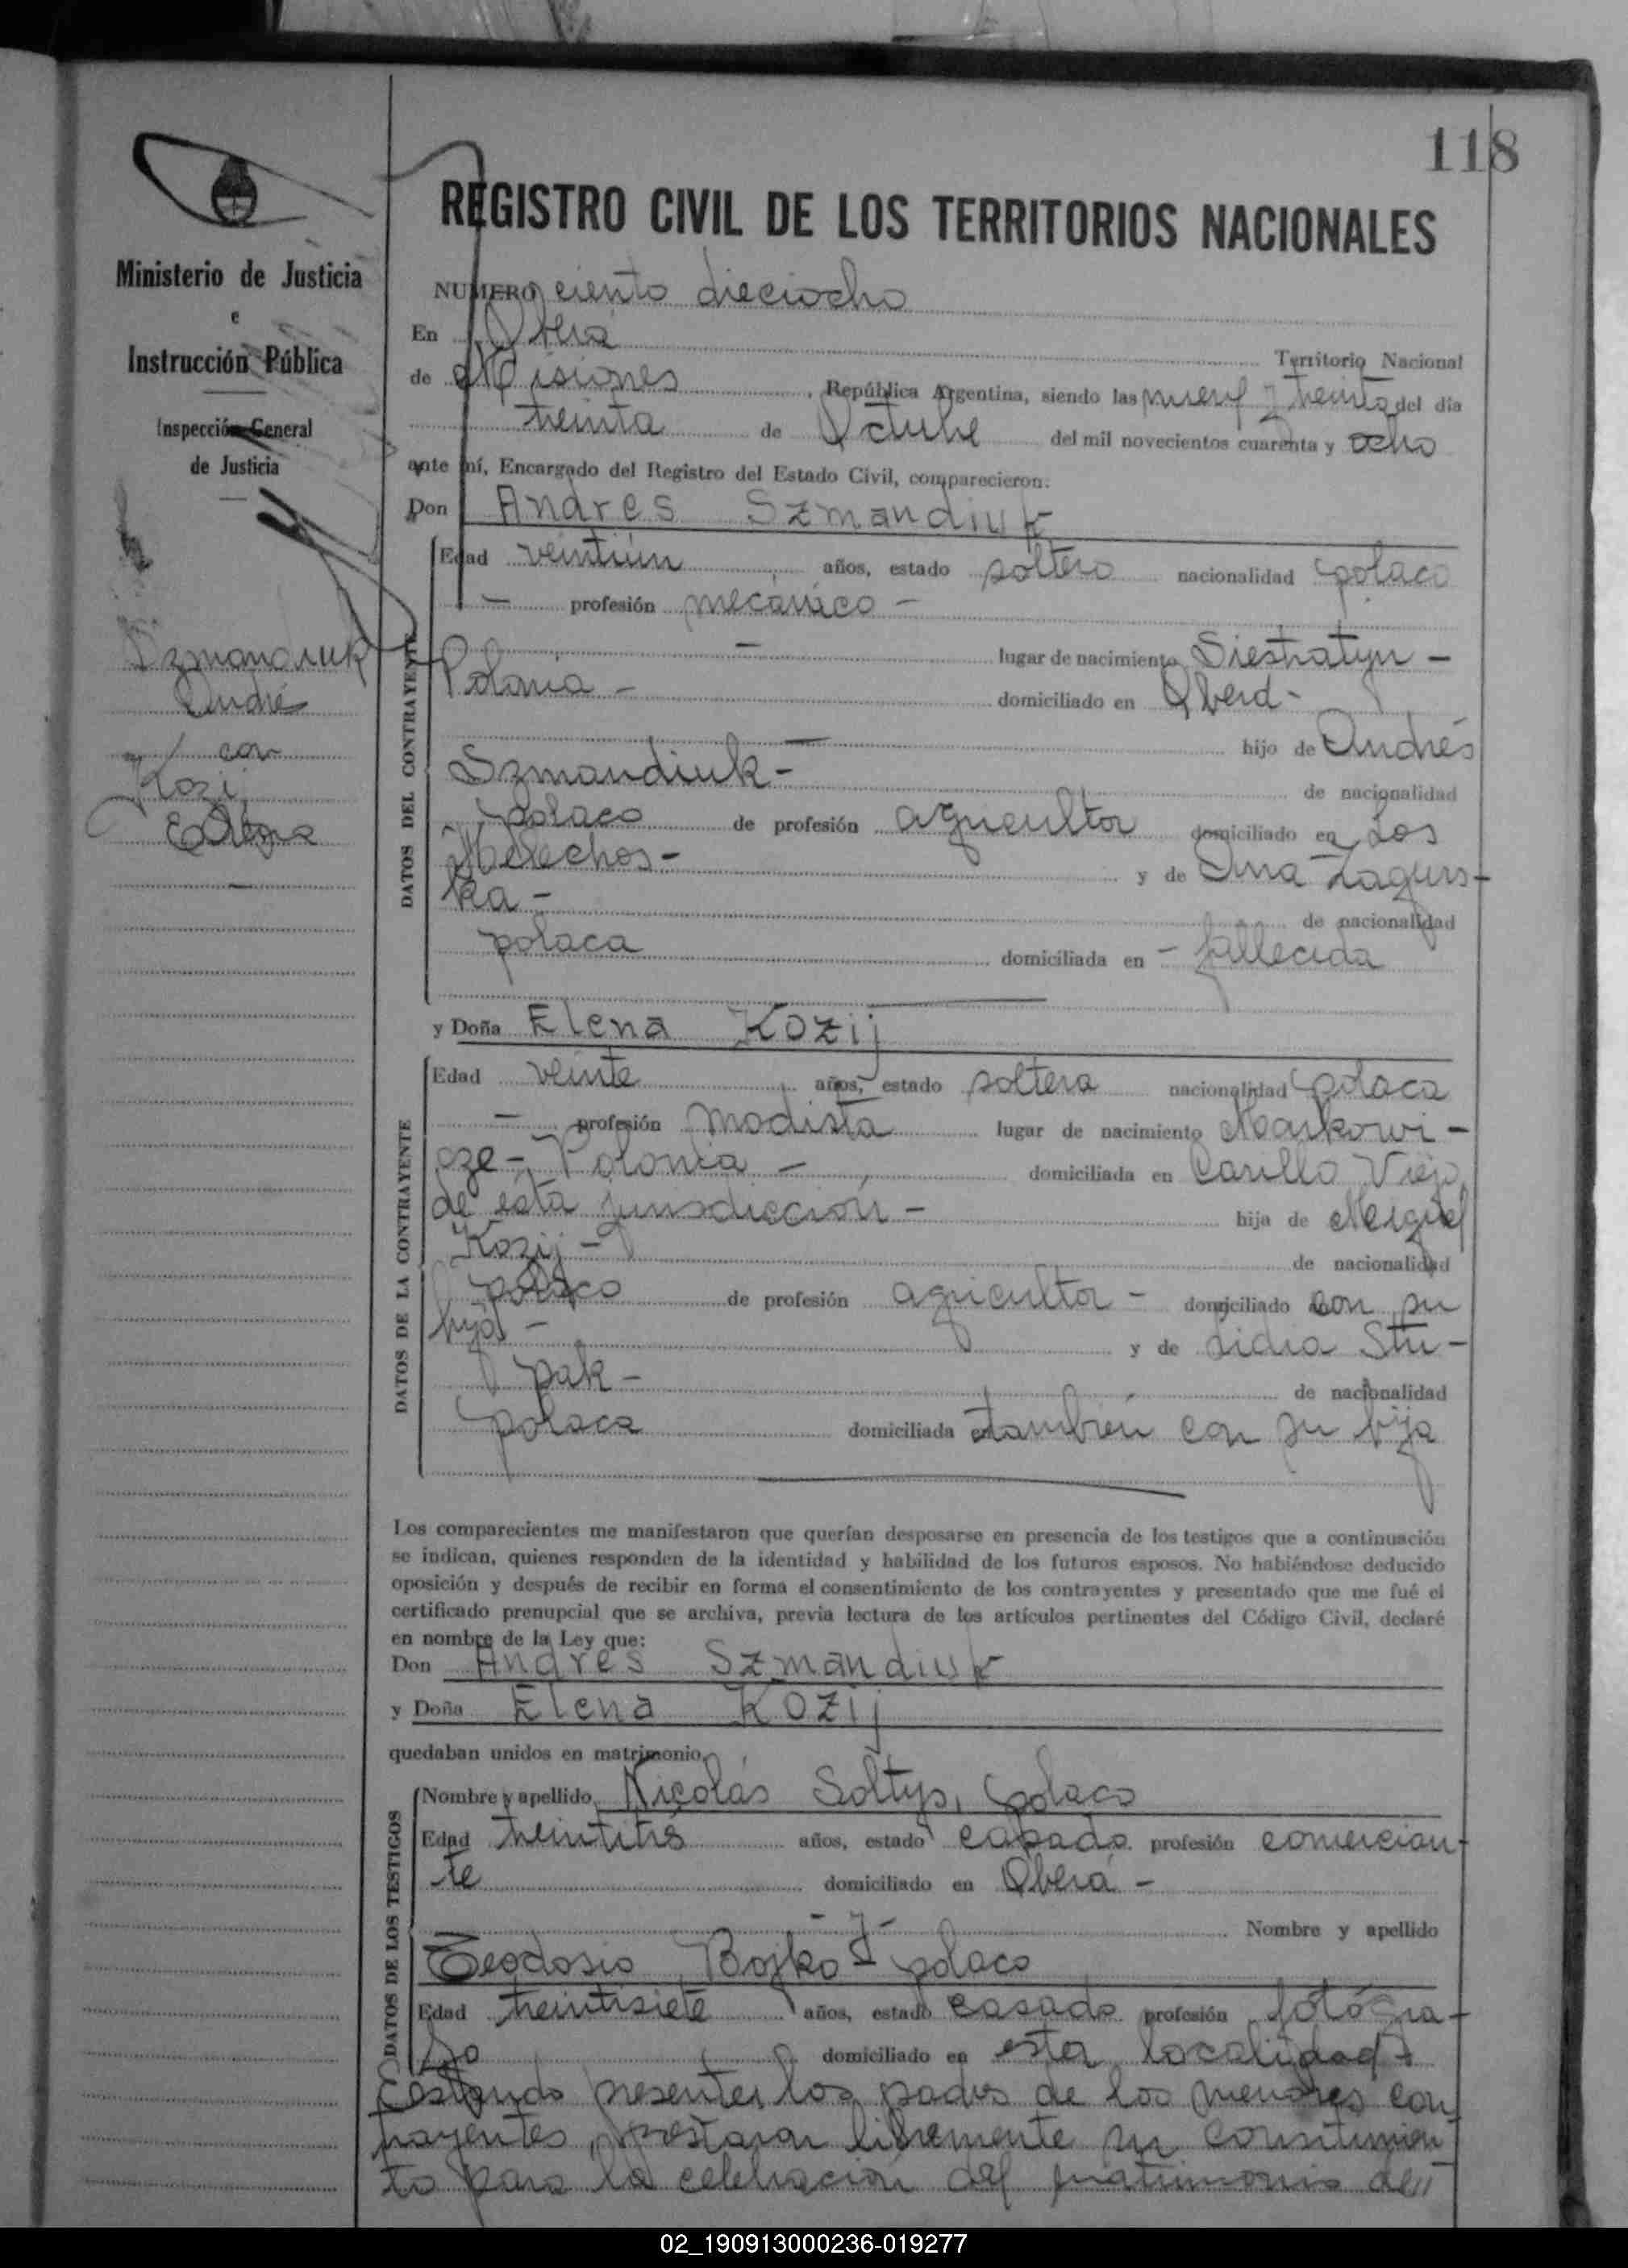 118
REGISTRO CIVIL DE LOS TERRITORIOS NACIONALES
Ministerio de Justicia
e
Instrucción Pública
Inspección General
de Justicia
Szmandiuk
André
con
Kozij
Elena
NUMERO ciento dieciocho
En Oberá Territorio Nacional
de Misiones, República Argentina, siendo las nueve y treinta del día
treinta de Octubre del mil novecientos cuarenta y ocho
ante mí, Encargado del Registro del Estado Civil, comparecieron:
Don Andres Szmandiuk
DATOS DEL CONTRAYENTE
Edad veintiún años, estado soltero nacionalidad polaco
— profesión mecánico —
— lugar de nacimiento Siestratyn —
Polonia — domiciliado en Oberá -
— hijo de Andrés
Szmandiuk - de nacionalidad
polaco de profesión agricultor domiciliado en Los
Helechos - y de Ana Zagurs-
ka - de nacionalidad
polaca domiciliada en - fallecida
y Doña Elena Kozij
DATOS DE LA CONTRAYENTE
Edad veinte años, estado soltera nacionalidad polaca
— profesión modista lugar de nacimiento Markowi-
cze -, Polonia - domiciliada en Carillo Viejo
de ésta jurisdicción - hija de Miguel
Kozij - de nacionalidad
polaco de profesión agricultor - domiciliado con su
hija - y de Lidia Stu-
pak - de nacionalidad
polaca domiciliada también con su hija
Los comparecientes me manifestaron que querían desposarse en presencia de los testigos que a continuación
se indican, quienes responden de la identidad y habilidad de los futuros esposos. No habiéndose deducido
oposición y después de recibir en forma el consentimiento de los contrayentes y presentado que me fué el
certificado prenupcial que se archiva, previa lectura de los artículos pertinentes del Código Civil, declaré
en nombre de la Ley que:
Don Andres Szmandiuk
y Doña Elena Kozij
quedaban unidos en matrimonio.
DATOS DE LOS TESTIGOS
Nombre y apellido Nicolás Soltys, polaco
Edad treintitrés años, estado casado profesión comercian-
te domiciliado en Oberá -
- y - Nombre y apellido
Teodosio Bojko - polaco
Edad treintisiete años, estado casado profesión fotógra-
fo domiciliado en esta localidad
Estando presentes los padres de los menores con
trayentes, prestaron libremente su consentimien
to para la celebración del matrimonio de
02_190913000236-019277